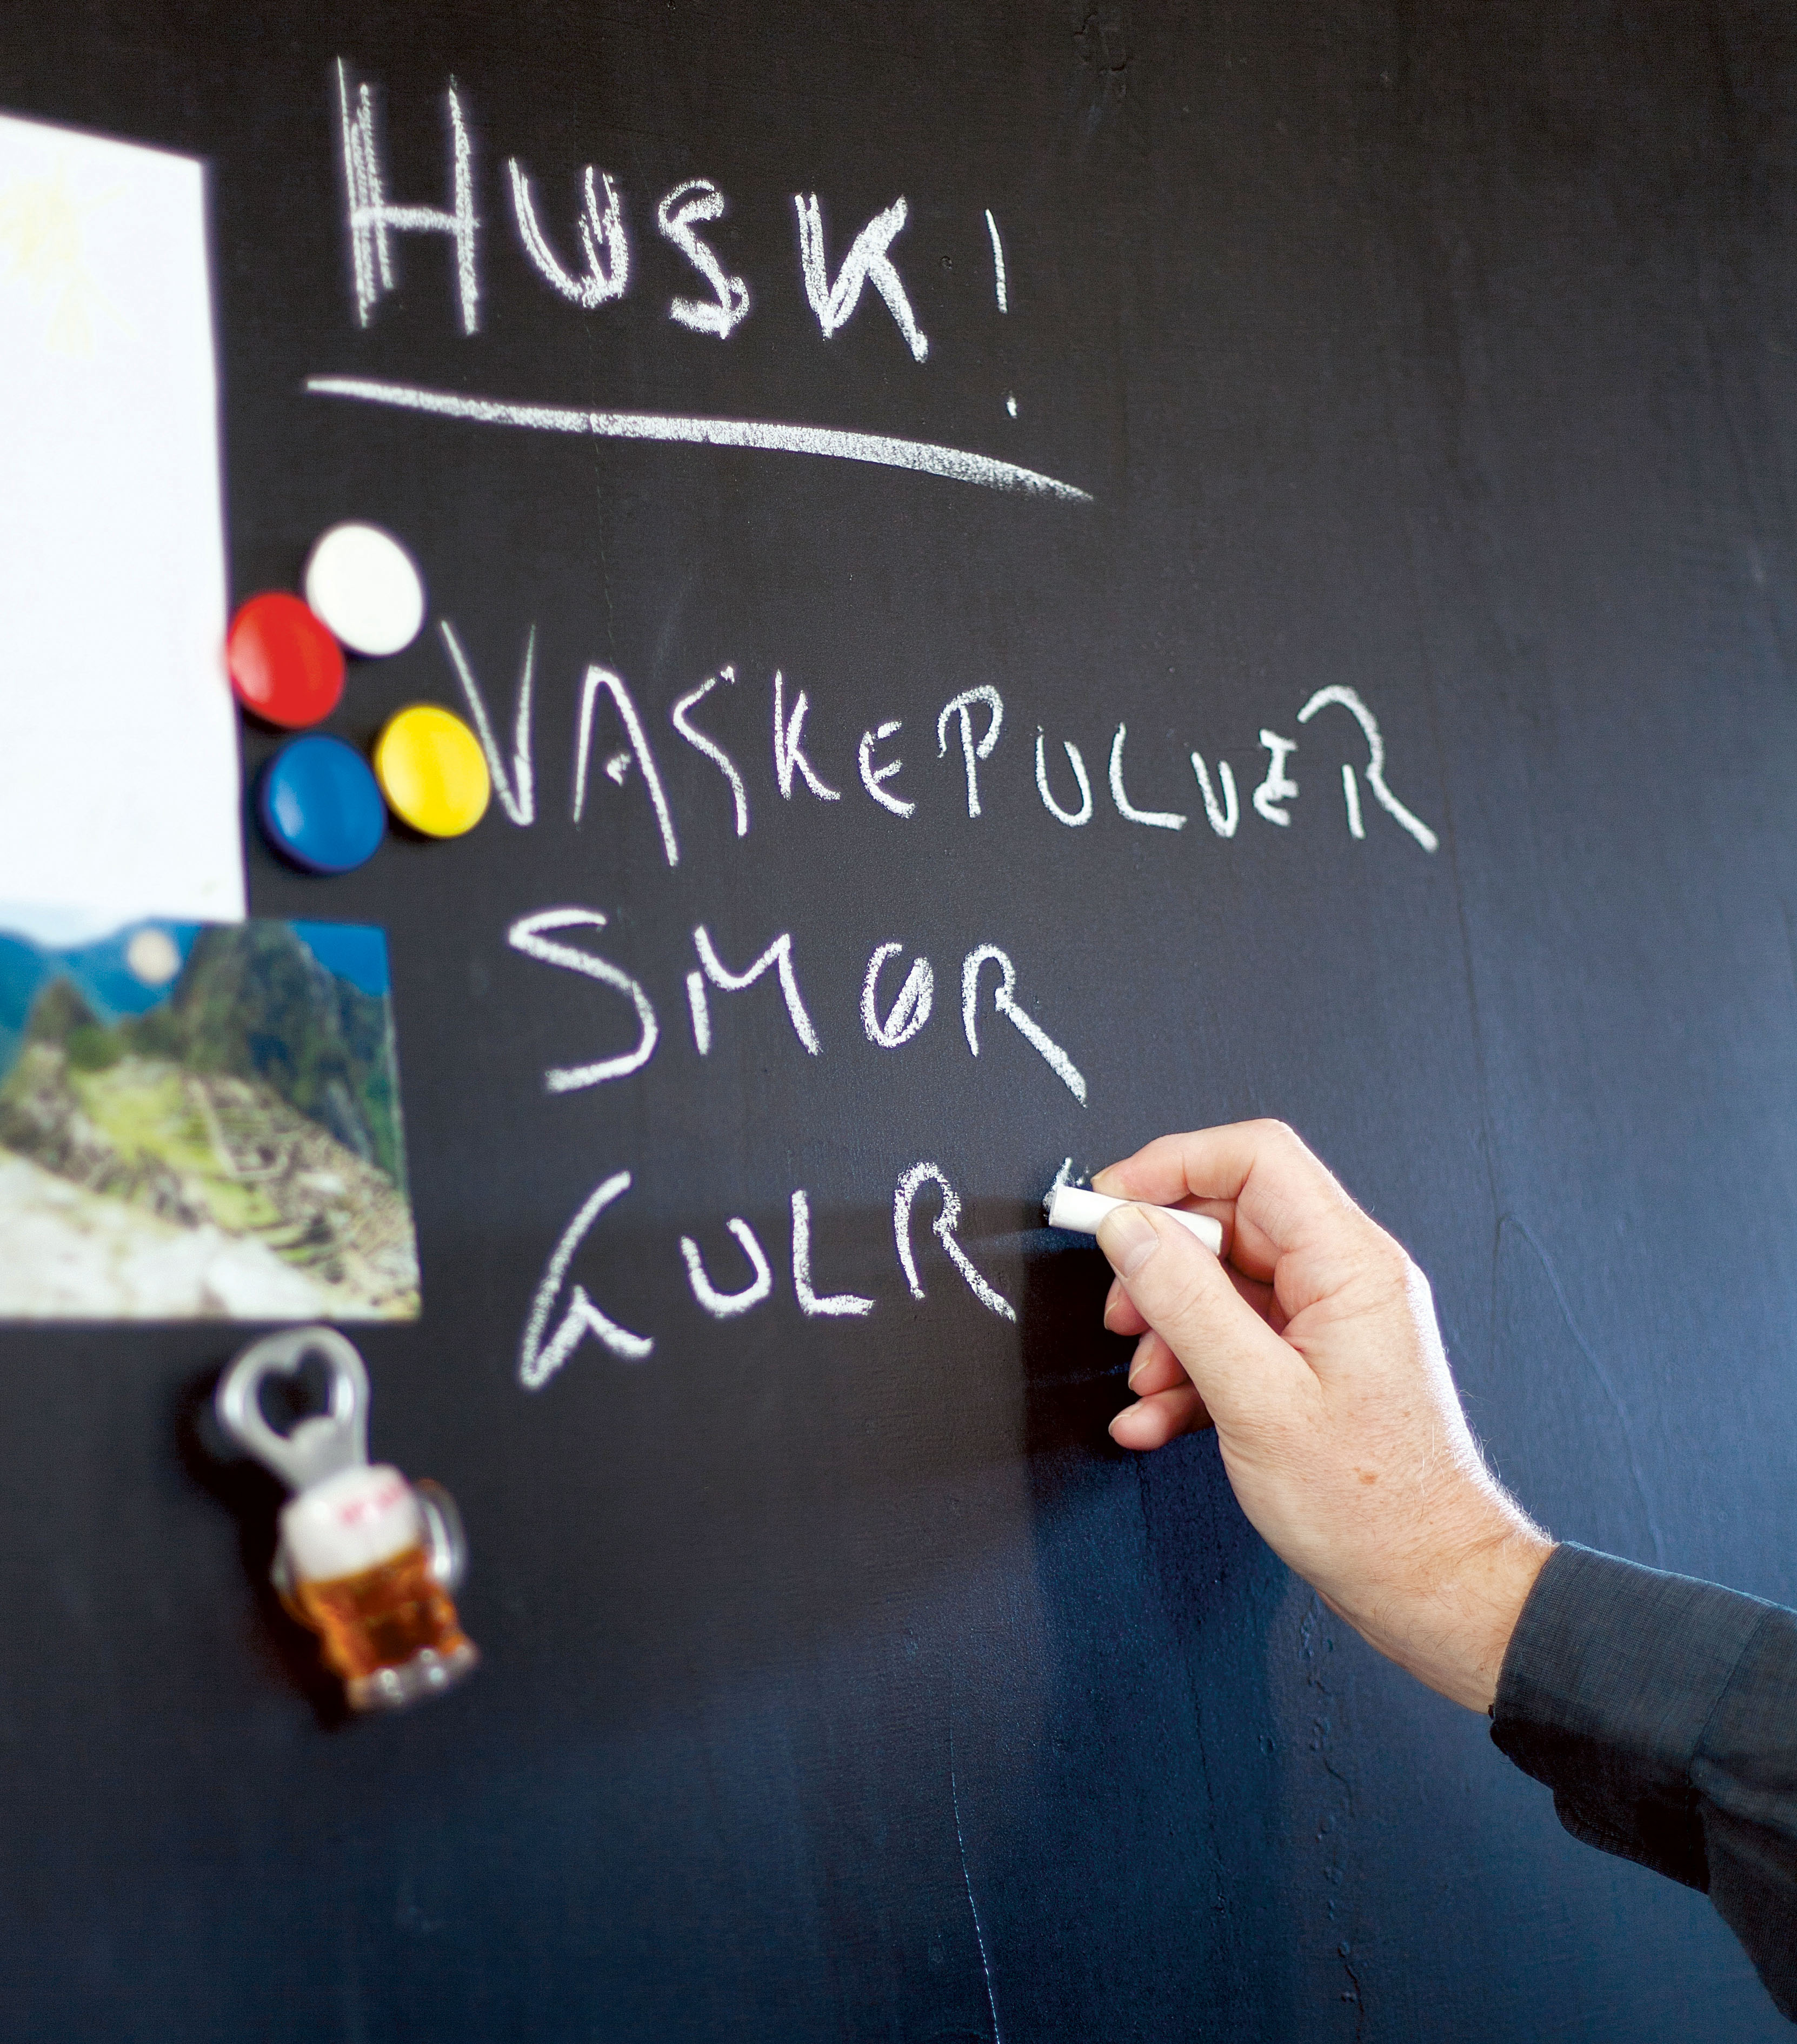 HUSK!
VASKEPULVER
SMØR
GULR